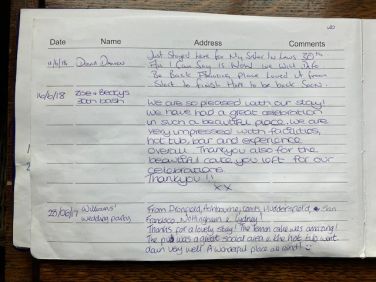 Date Name Address Comments
Just Stayed here for My Sister In Laws 30th
All I Can Say is Wow we Will Defo
Be Back Amazing Place Loved it from
Start to finish Hope to be back Soon.
16/6/18 Zoe & Betty's
30th bash
We are so pleased with our stay!
We have had a great celebration
in such a beautiful place. we are
very impressed with facilities,
hot tub, bar and experience
overall. Thankyou also for the
beautiful cake you left for our
celebrations.
Thankyou!!
xx
Williams'
wedding party
From Dronfield, Ashbourne, Leeds, Huddersfield, San
Francisco, Nottingham & Sydney!
Thanks for a lovely stay! The lemon cake was amazing!
The pub was a great social area & the hot tub went
down very well. A wonderful place all round!